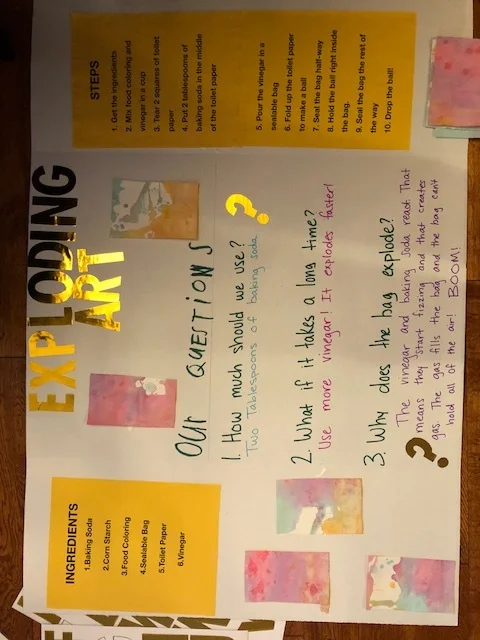 EXPLODING
ART
INGREDIENTS
1.Baking Soda
2.Corn Starch
3.Food Coloring
4.Sealable Bag
5.Toilet Paper
6.Vinegar
OUr QUESTIONS
1. How much should we use?
Two Tablespoons of baking soda
?
2. What if it takes a long time?
Use more vinegar! It explodes faster!
3. Why does the bag explode?
The vinegar and baking soda react. That
means they start fizzing and that creates
gas. The gas fills the bag and the bag can't
hold all of the air! BOOM!
?
STEPS
1. Get the ingredients
2. Mix food coloring and
vinegar in a cup
3. Tear 2 squares of toilet
paper
4. Put 2 tablespoons of
baking soda in the middle
of the toilet paper
5. Pour the vinegar in a
sealable bag
6. Fold up the toilet paper
to make a ball
7. Seal the bag half-way
8. Hold the ball right inside
the bag.
9. Seal the bag the rest of
the way
10. Drop the ball!